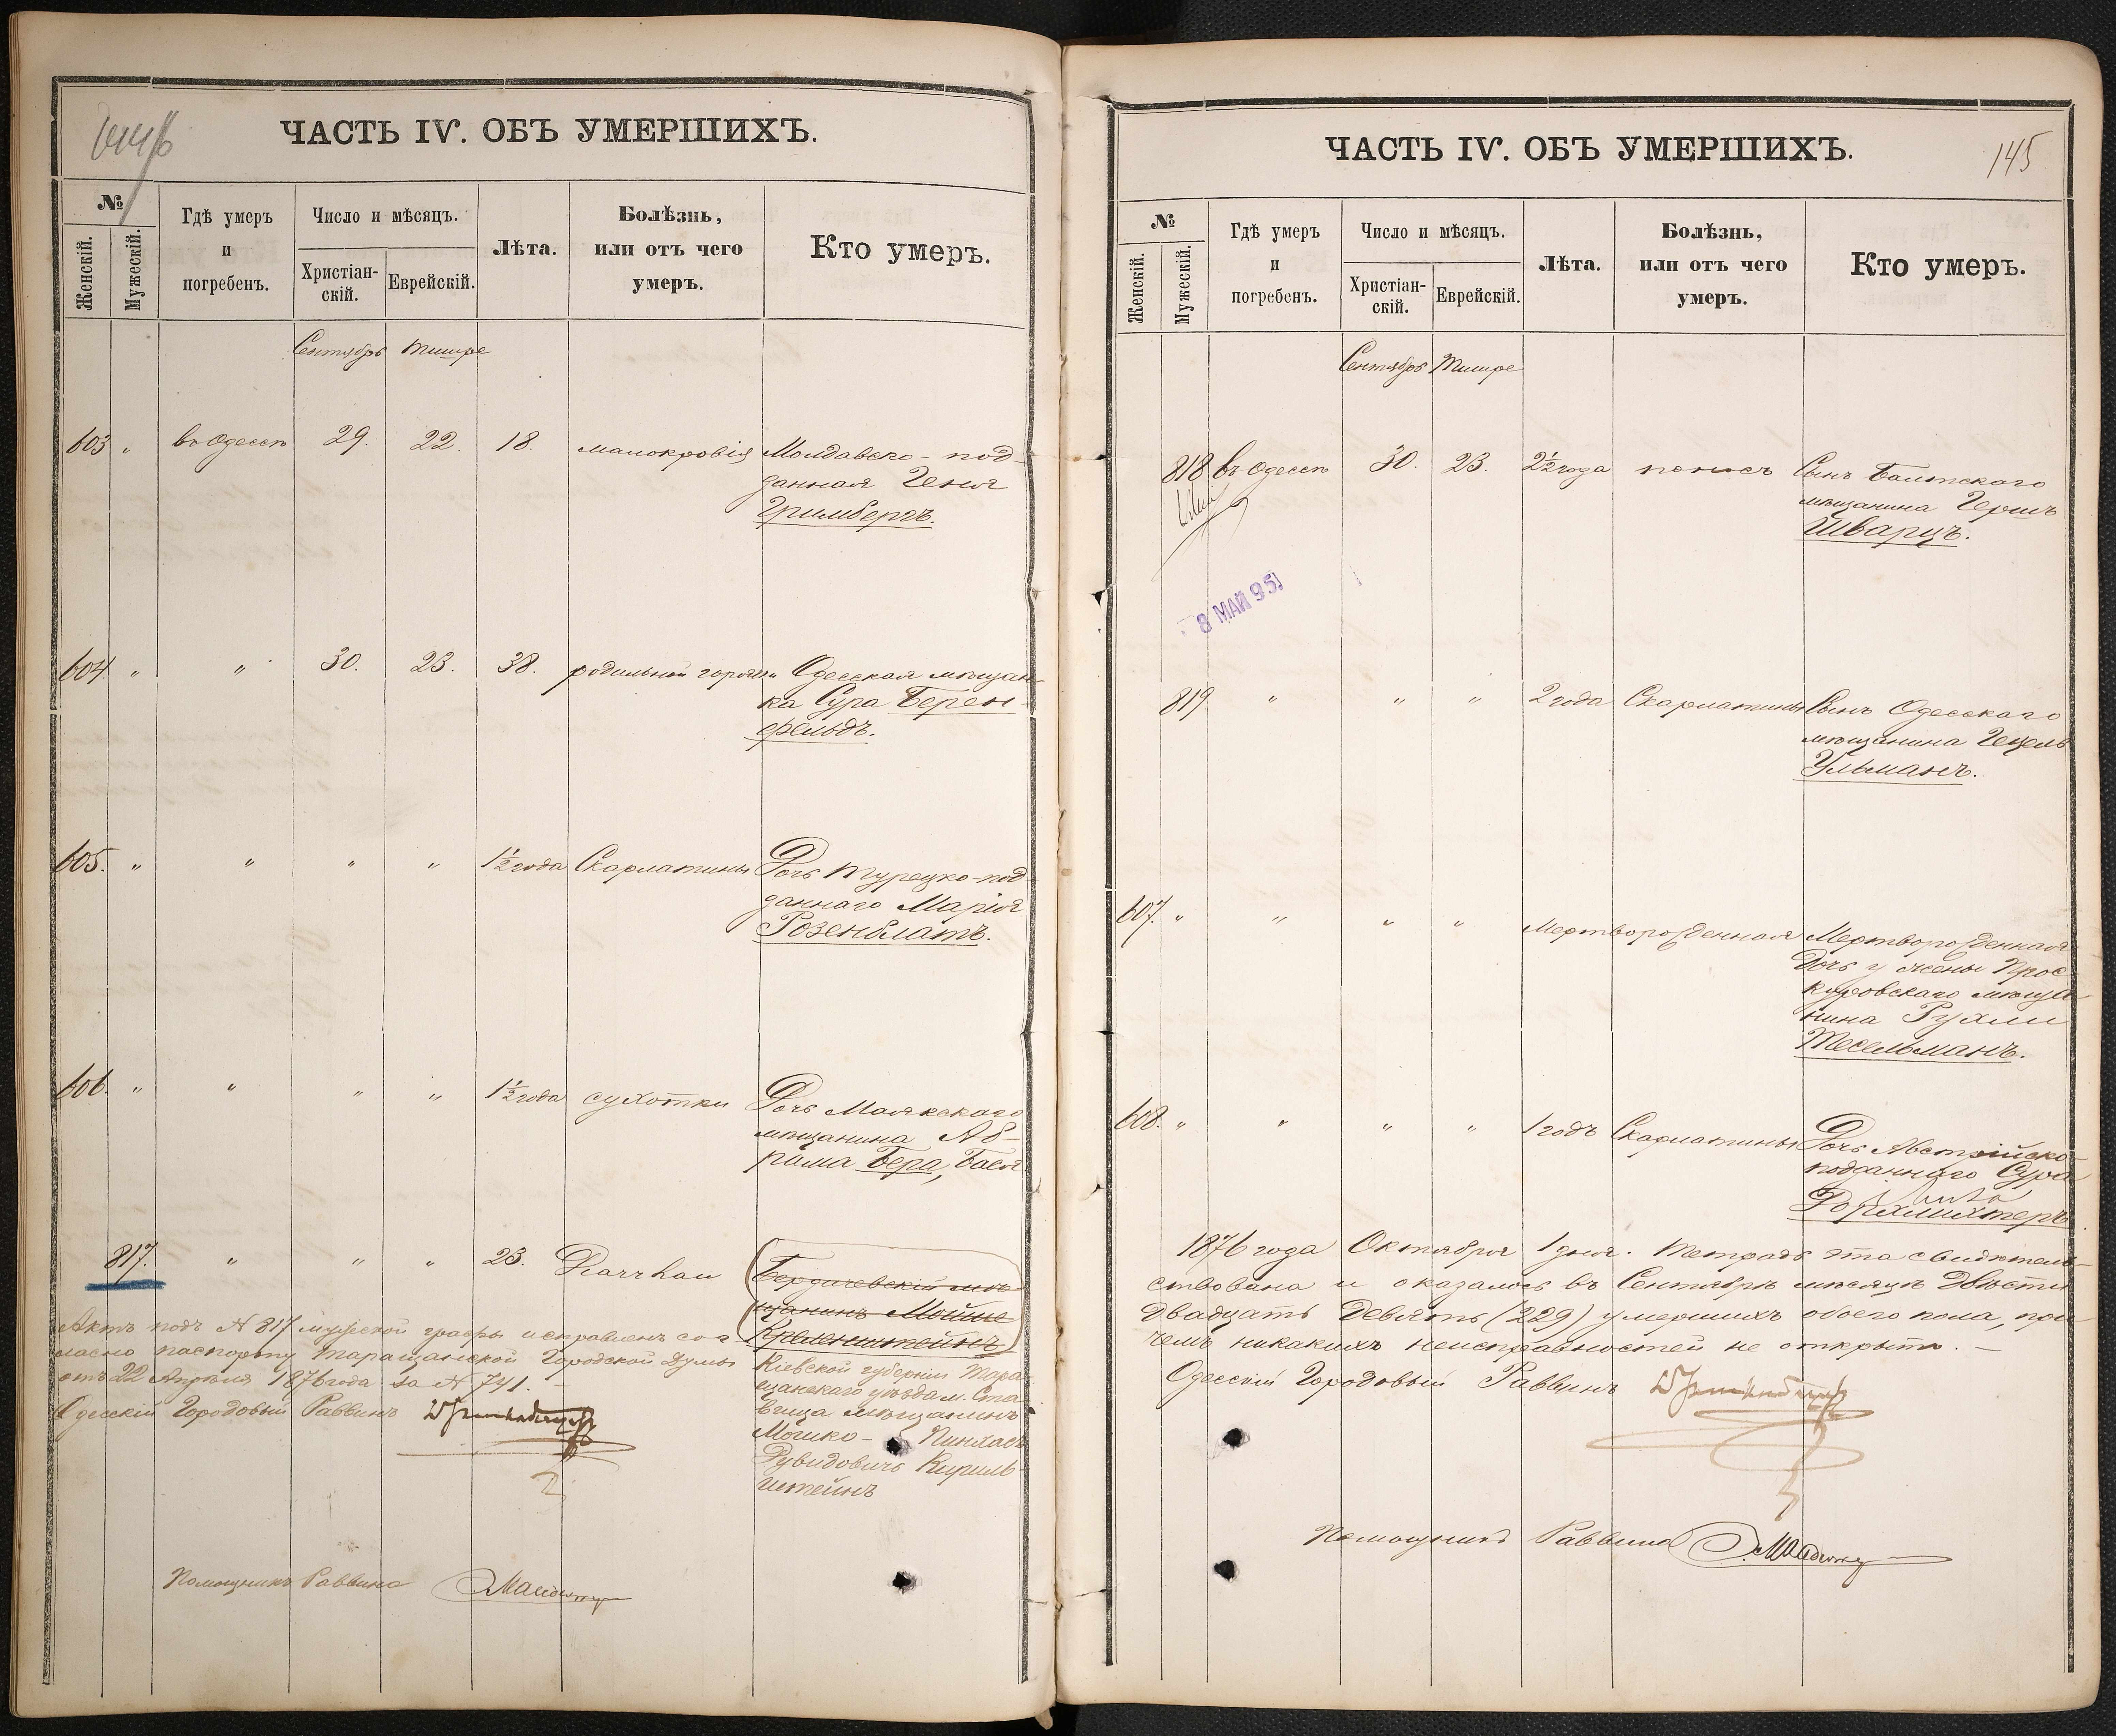 ЧАСТЬ IV. ОБЪ УМЕРШИХЪ.
№
Женскій.
Мужескій.
Гдѣ умеръ
и
погребенъ.
Число и мѣсяцъ.
Христіан-
скій.
Еврейскій.
Лѣта.
Болѣзнь,
или отъ чего
умеръ.
Кто умеръ.
Сентябрь Тишре
603 " въ Одессѣ 29. 22. 18. малокровія Молдавско-под-
данная Геня
Гримбергъ.
604 " " 30. 23. 38. родильной горячки Одесская мѣщан-
ка Сура Берен-
фельдъ.
605. " " " " 1½ года Скарлатины Дочь Турецко-под-
даннаго Марія
Розенблатъ.
606. " " " " 1½ года сухотки Дочь Маякскаго
мѣщанина Аб-
рама Бера, Бася
817. " " " 23. Бердичевскій мѣ-
щанинъ Мойше
Кременштейнъ
Кіевской губерніи Тара-
щанскаго уѣзда м. Ста-
вища мѣщанинъ
Мошко- Пинхасъ
Рувидовичъ Кириль-
штейнъ
Актъ подъ № 817 мужской графы исправленъ сог-
ласно паспорту Таращанской Городской Думы
отъ 22 Апрѣля 1876 года за № 741.
Одесскій Городовый Раввинъ
Помощникъ Раввина
ЧАСТЬ IV. ОБЪ УМЕРШИХЪ.
145
№
Женскій.
Мужескій.
Гдѣ умеръ
и
погребенъ.
Число и мѣсяцъ.
Христіан-
скій.
Еврейскій.
Лѣта.
Болѣзнь,
или отъ чего
умеръ.
Кто умеръ.
Сентябрь Тишре
818 въ Одессѣ 30. 23. 2½ года поносъ Сынъ Балтскаго
мѣщанина Гершъ
Шварцъ.
8 МАЙ 95
819 " " " 2 года Скарлатины Сынъ Одесскаго
мѣщанина Гецель
Ульманъ.
607. " " " " Мертворожденная Мертворожденная
дочь у жены Прос-
куровскаго мѣща-
нина Рухли
Тесельманъ.
608. " " " " 1 годъ Скарлатины Дочь Австрійско-
подданнаго Сура
1876 года Октября 1 дня. Тетрадь эта свидѣтель-
ствована и оказалось въ Сентябрѣ мѣсяцѣ Двѣсти
Двадцать Девять (229) умершихъ обоего пола, при-
чемъ никакихъ неисправностей не открыто. —
Одесскій Городовый Раввинъ
Помощникъ Раввина